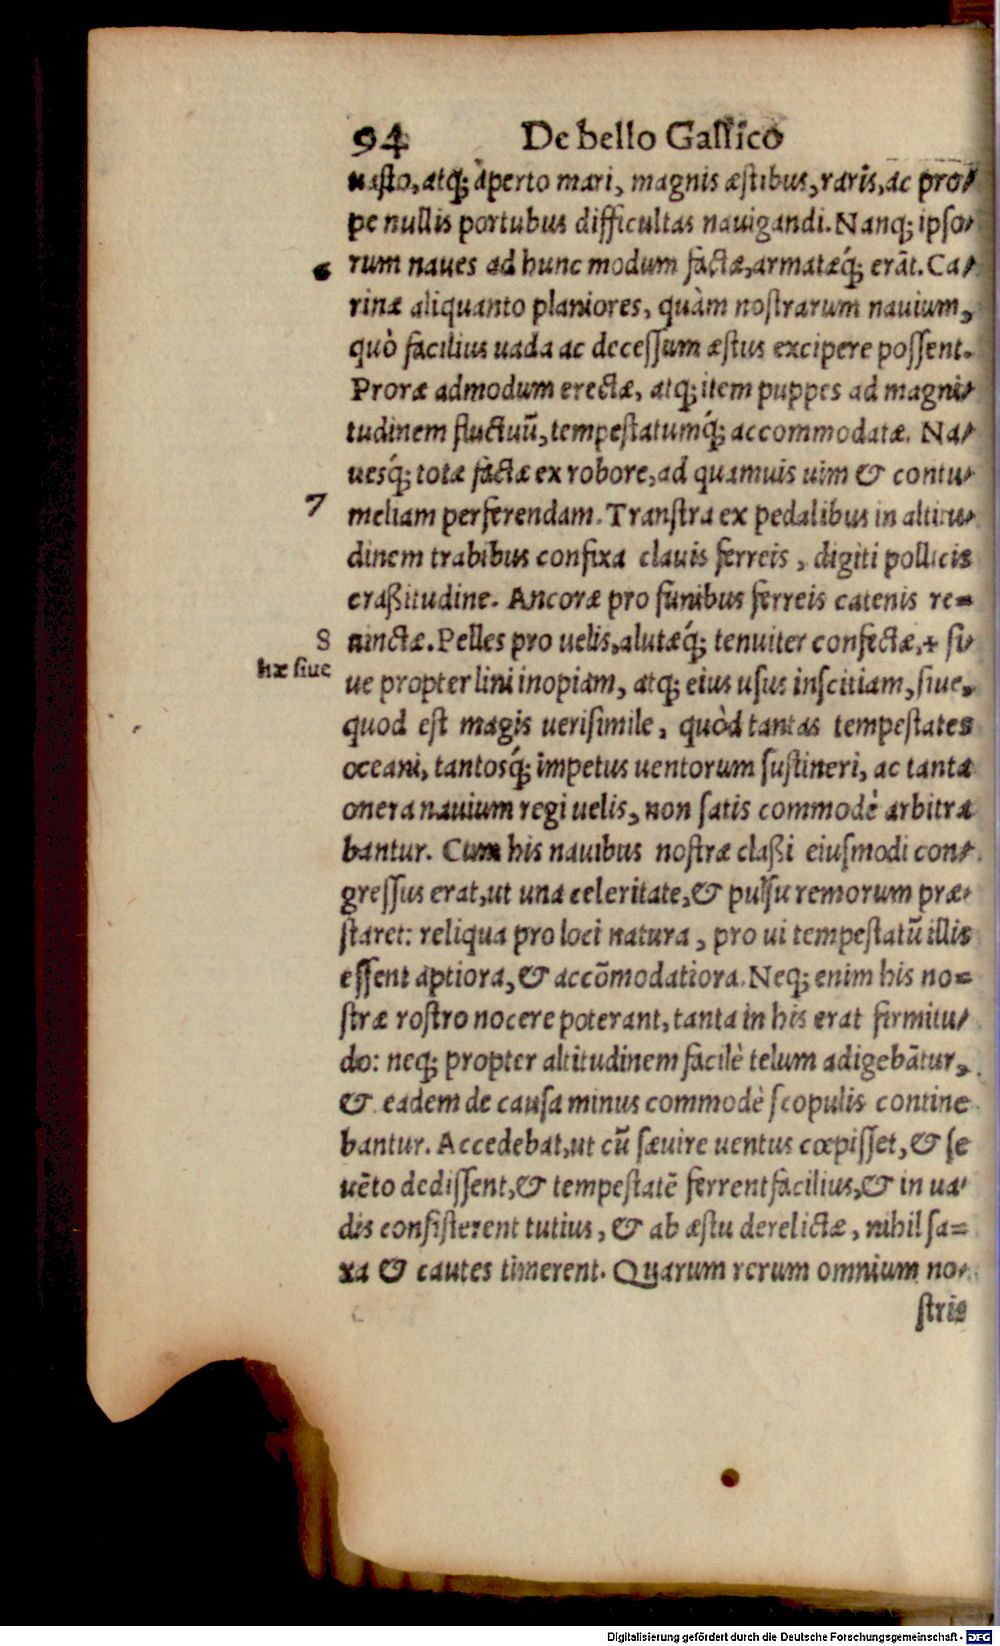 94 De bello Gallico
uasto, atq; aperto mari, magnis æstibus, raris, ac pro-
pe nullis portubus difficultas nauigandi. Nanq; ipso-
6 rum naues ad hunc modum factæ, armatæq́; erãt. Ca-
rinæ aliquanto planiores, quàm nostrarum nauium,
quò facilius uada ac decessum æstus excipere possent.
Proræ admodum erectæ, atq; item puppes ad magni-
tudinem fluctuũ, tempestatumq́; accommodatæ. Na-
uesq́; totæ factæ ex robore, ad quamuis uim & contu-
7 meliam perferendam. Transtra ex pedalibus in altitu-
dinem trabibus confixa clauis ferreis, digiti pollicis
craßitudine. Ancoræ pro funibus ferreis catenis re=
8 uinctæ. Pelles pro uelis, alutæq́; tenuiter confectæ, + si-
hæ siue
ue propter lini inopiam, atq; eius usus inscitiam, siue,
quod est magis uerisimile, quòd tantas tempestates
oceani, tantosq́; impetus uentorum sustineri, ac tanta
onera nauium regi uelis, non satis commodè arbitra
bantur. Cum his nauibus nostræ claßi eiusmodi con-
gressus erat, ut una celeritate, & pulsu remorum præ-
staret: reliqua pro loci natura, pro ui tempestatũ illis
essent aptiora, & accõmodatiora. Neq; enim his no=
stræ rostro nocere poterant, tanta in his erat firmitu-
do: neq; propter altitudinem facilè telum adigebãtur,
& eadem de causa minus commodè scopulis contine
bantur. Accedebat, ut cũ sæuire uentus cœpisset, & se
uẽto dedissent, & tempestatẽ ferrent facilius, & in ua-
dis consisterent tutius, & ab æstu derelictæ, nihil sa=
xa & cautes timerent. Quarum rerum omnium no-
stris
Digitalisierung gefördert durch die Deutsche Forschungsgemeinschaft - DFG